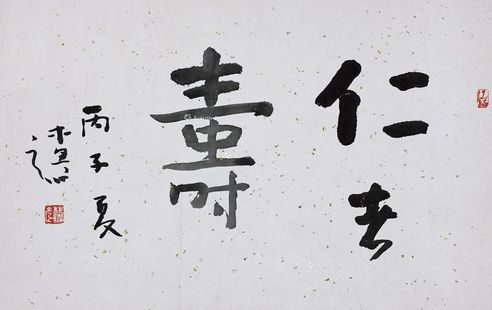 仁者
壽
丙子夏